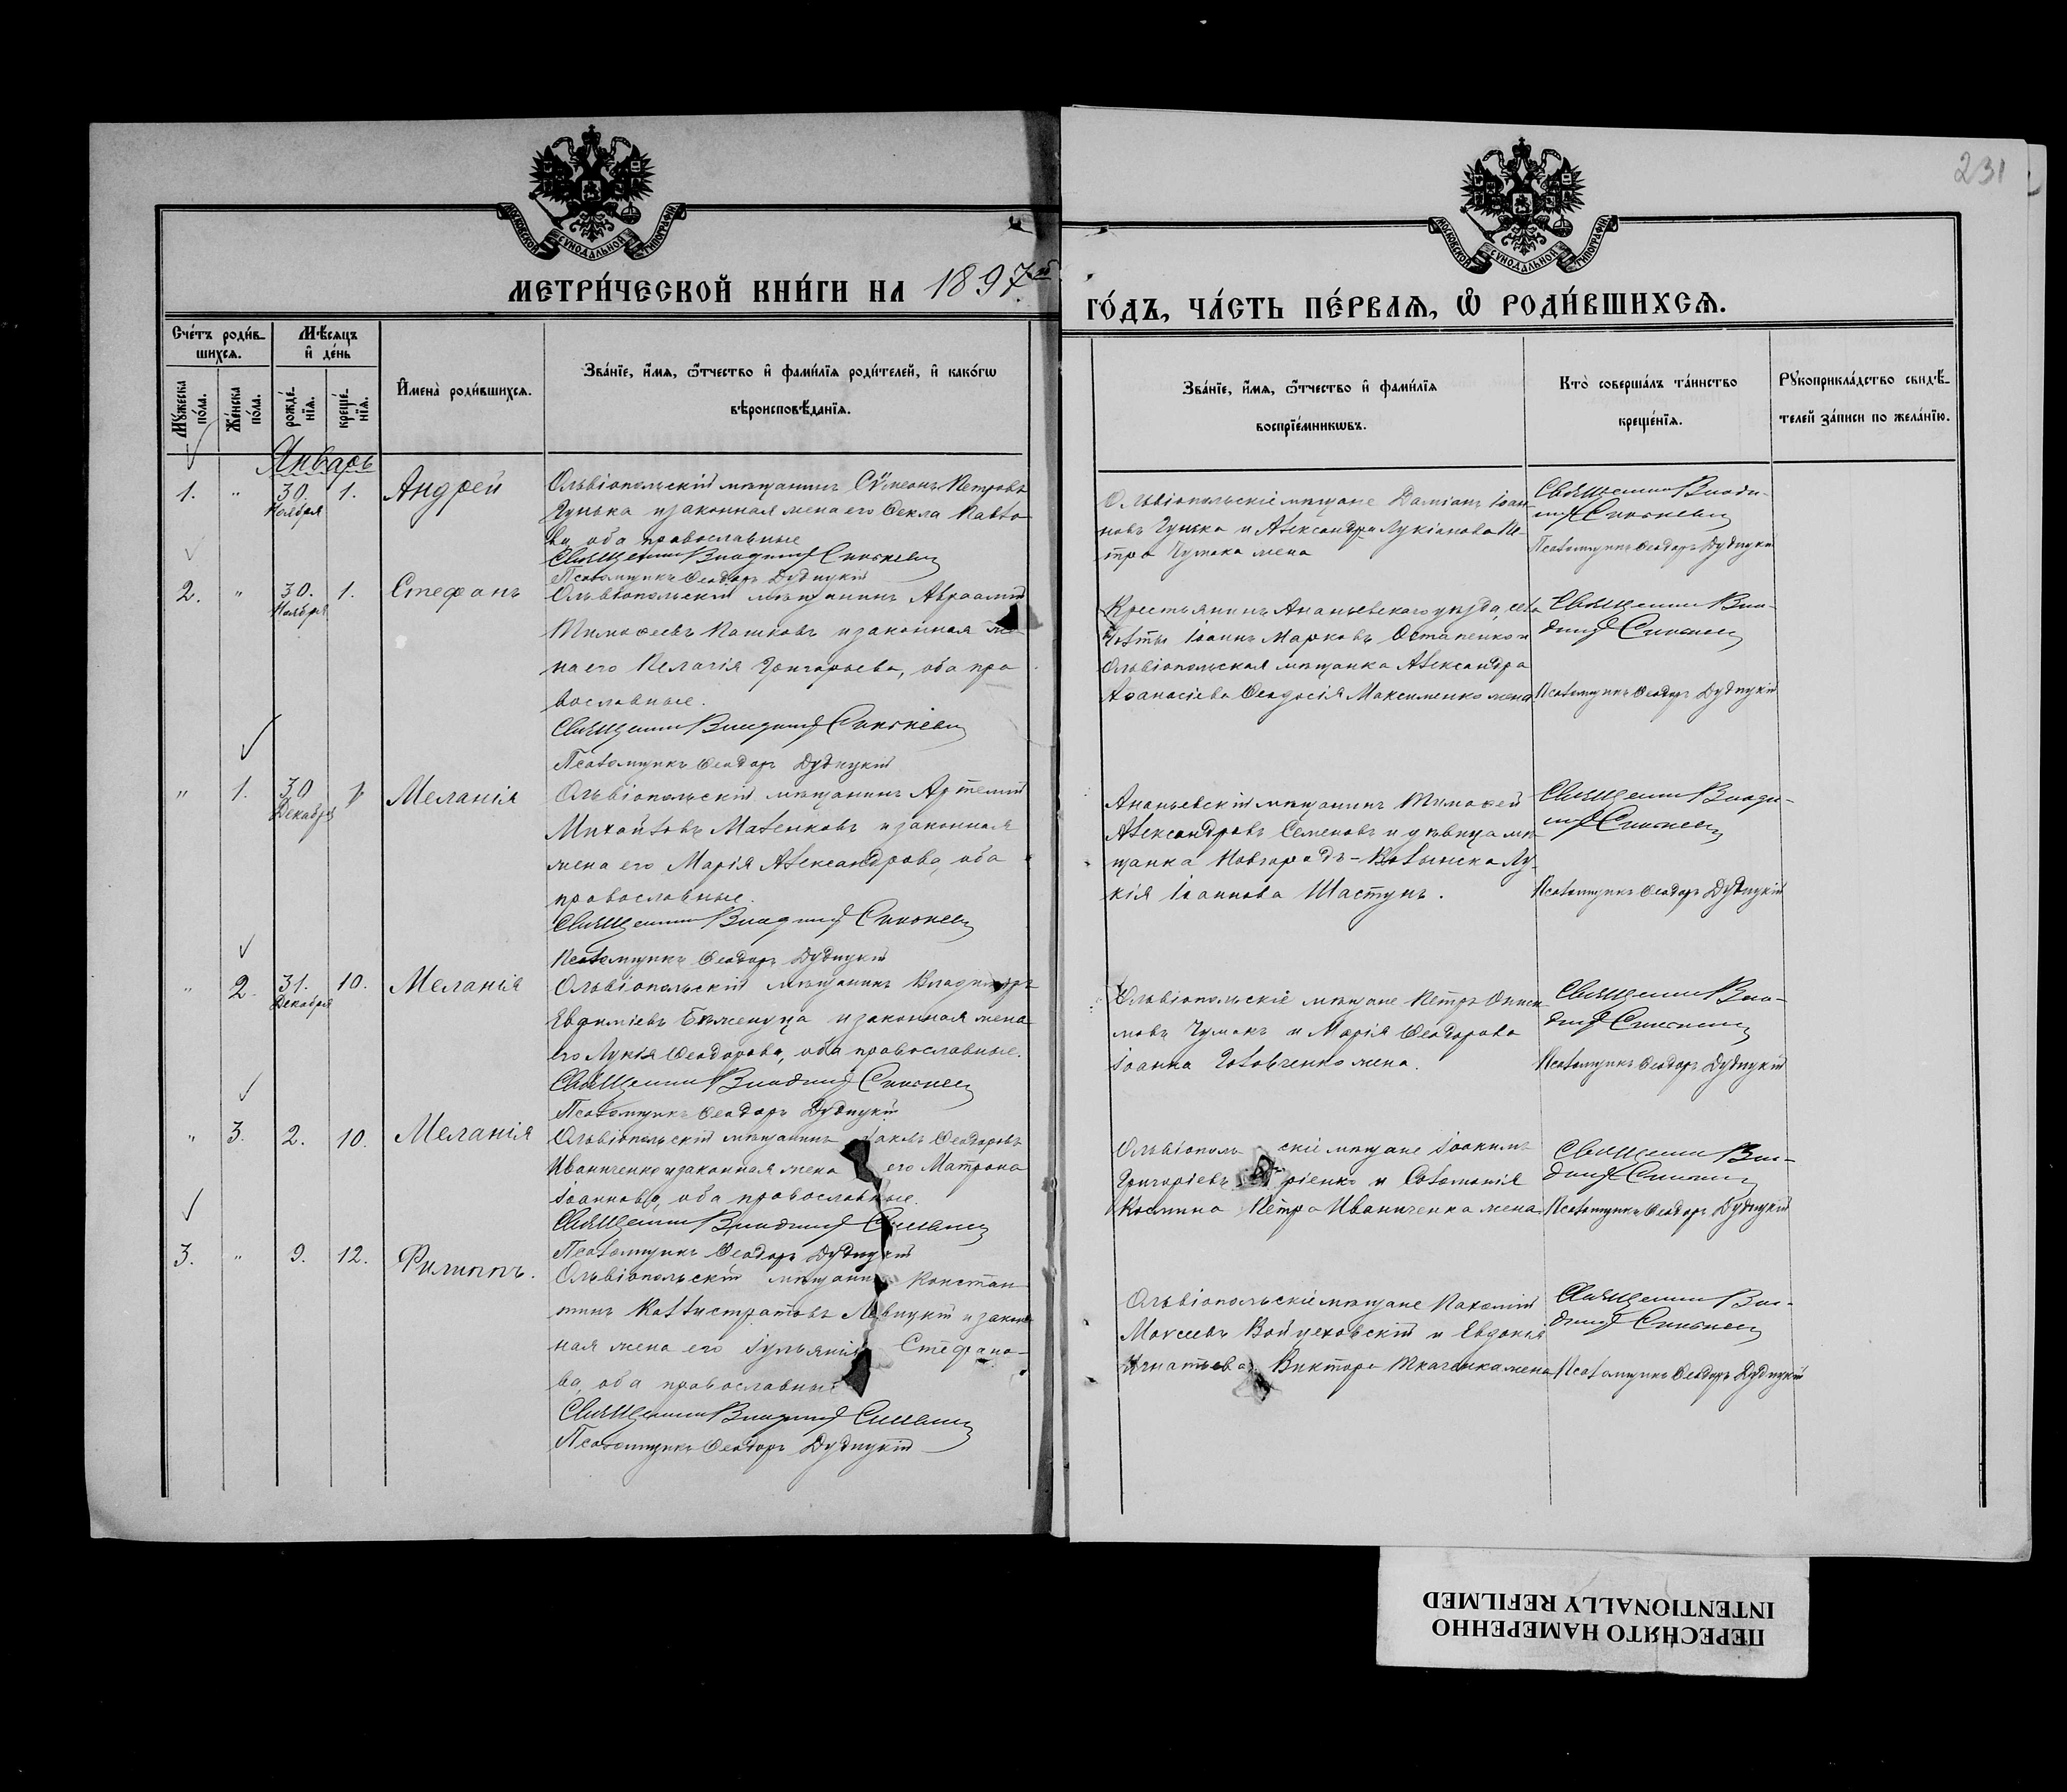 231
МОСКОВСКОЙ СѴНОДАЛЬНОЙ ТИПОГРАФІИ
МОСКОВСКОЙ СѴНОДАЛЬНОЙ ТИПОГРАФІИ
МЕТРИ́ЧЕСКОЙ КНИ́ГИ НА 1897й
ГО́ДЪ, ЧА́СТЬ ПЕ́РВАѦ, Ѡ РОДИ́ВШИХСѦ.
Сче́тъ роди́в-
шихсѧ.
Мѣ́сѧцъ
и҆ де́нь
Мꙋ́жеска по́ла.
Же́нска по́ла.
рожде́-нїѧ.
креще́-нїѧ.
И҆мена̀ роди́вшихсѧ.
Зва́нїе, и҆́мѧ, ѻ҆́тчество и҆ фами́лїѧ роди́телей, и҆ како́гѡ
вѣроисповѣ́данїѧ.
Зва́нїе, и҆́мѧ, ѻ҆́тчество и҆ фами́лїѧ
воспрїе́мникѡвъ.
Кто̀ соверша́лъ та́инство
креще́нїѧ.
Рꙋкоприкла́дство свидѣ́-
телей за́писи по жела́нїю.
Январь
1. " 30. Ноября 1. Андрей
Ольвіопольскій мѣщанинъ Сѵмеонъ Петровъ
Гунька и законная жена его Ѳекла Павло-
ва, оба православные
Священникъ Владиміръ
Псаломщикъ Ѳеодоръ Дудицкій
Ольвіопольскіе мѣщане Даміанъ Іоан-
новъ Гунька и Александра Лукіанова Пе-
тра Чумака жена
Священникъ Влади-
міръ
Псаломщикъ Ѳеодоръ Дудицкій
2. " 30. Ноября 1. Стефанъ
Ольвіопольскій мѣщанинъ Авраамій
Тимоѳеевъ Пашковъ и законная же-
на его Пелагія Григорьева, оба пра-
вославные.
Священникъ Владиміръ
Псаломщикъ Ѳеодоръ Дудицкій
Крестьянинъ Ананьевскаго уѣзда, села
Іоаннъ Марковъ Остапенко и
Ольвіопольская мѣщанка Александра
Аѳанасіева Ѳеодосія Максименко жена
Священникъ Вла-
диміръ
Псаломщикъ Ѳеодоръ Дудицкій
" 1. 30 Декабря 1 Меланія
Ольвіопольскій мѣщанинъ Артемій
Михайловъ Маленковъ и законная
жена его Марія Александрова, оба
православные.
Священникъ Владиміръ
Псаломщикъ Ѳеодоръ Дудицкій
Ананьевскій мѣщанинъ Тимоѳей
Александровъ Семеновъ и дѣвица мѣ-
щанка Новгорадъ-Волынска Лу-
кія Іоаннова Шастунъ.
Священникъ Влади-
міръ
Псаломщикъ Ѳеодоръ Дудицкій
" 2. 31. Декабря 10. Меланія
Ольвіопольскій мѣщанинъ Владиміръ
Евѳиміевъ и законная жена
его Лукія Ѳеодорова, оба православные.
Священникъ Владиміръ
Псаломщикъ Ѳеодоръ Дудицкій
Ольвіопольскіе мѣщане Петръ Ониси-
мовъ Чумакъ и Марія Ѳеодорова
Іоанна Головченко жена.
Священникъ Вла-
диміръ
Псаломщикъ Ѳеодоръ Дудицкій
" 3. 2. 10. Меланія
Ольвіопольскій мѣщанинъ Ѳеодоровъ
Иваниченко и законная жена его Матрона
Іоаннова, оба православные.
Священникъ Владиміръ
Псаломщикъ Ѳеодоръ Дудицкій
Ольвіопольскіе мѣщане Іоакимъ
Григоріевъ и Соломонія
Космина Петра Иваниченка жена
Священникъ Вла-
диміръ
Псаломщикъ Ѳеодоръ Дудицкій
3. " 9. 12. Филиппъ.
Ольвіопольскій мѣщанинъ Констан-
тинъ Каллистратовъ Левицкій и закон-
ная жена его Іульянія Стефано-
ва, оба православные
Священникъ Владиміръ
Псаломщикъ Ѳеодоръ Дудицкій
Ольвіопольскіе мѣщане Пахомій
Моисеевъ Войцеховскій и Евдокія
Игнатьева Виктора Ткаченка жена
Священникъ Вла-
диміръ
Псаломщикъ Ѳеодоръ Дудицкій
ПЕРЕСНЯТО НАМЕРЕННО
INTENTIONALLY REFILMED